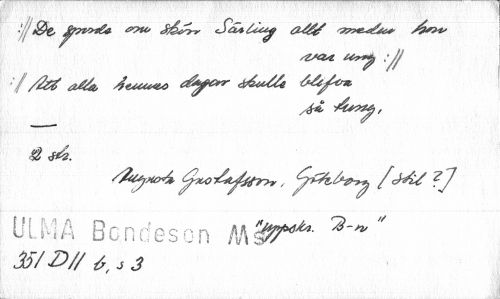 ://De sporde om skön Särling allt medan hon
var ung ://
:// Att alla hennes dagar skulle blifva
så tung,
2 str.
Augusta Gustafsson, Göteborg [stil?]
ULMA Bondeson Ms "uppskr. B-n"
351 D11 b, s 3